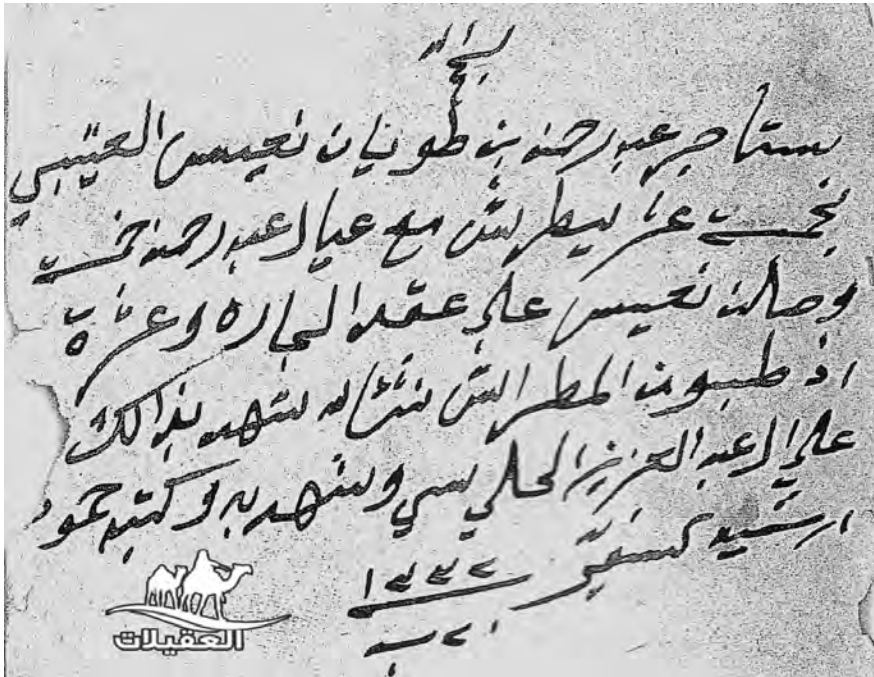 بسم الله
يستاجر عبدرحمن بن طويان نعيس العتيبي
بخمسه عشر يطرش مع عيال عبدرحمن خمسه
وصلن نعيس على عقد الجاره وعشره
اذ طبون المطراش يشهد بذالك
علي ال عبدالعزيز الحليسي وشهد به وكتبه حمود
ارشيد
١٣٣٢
العقيلات